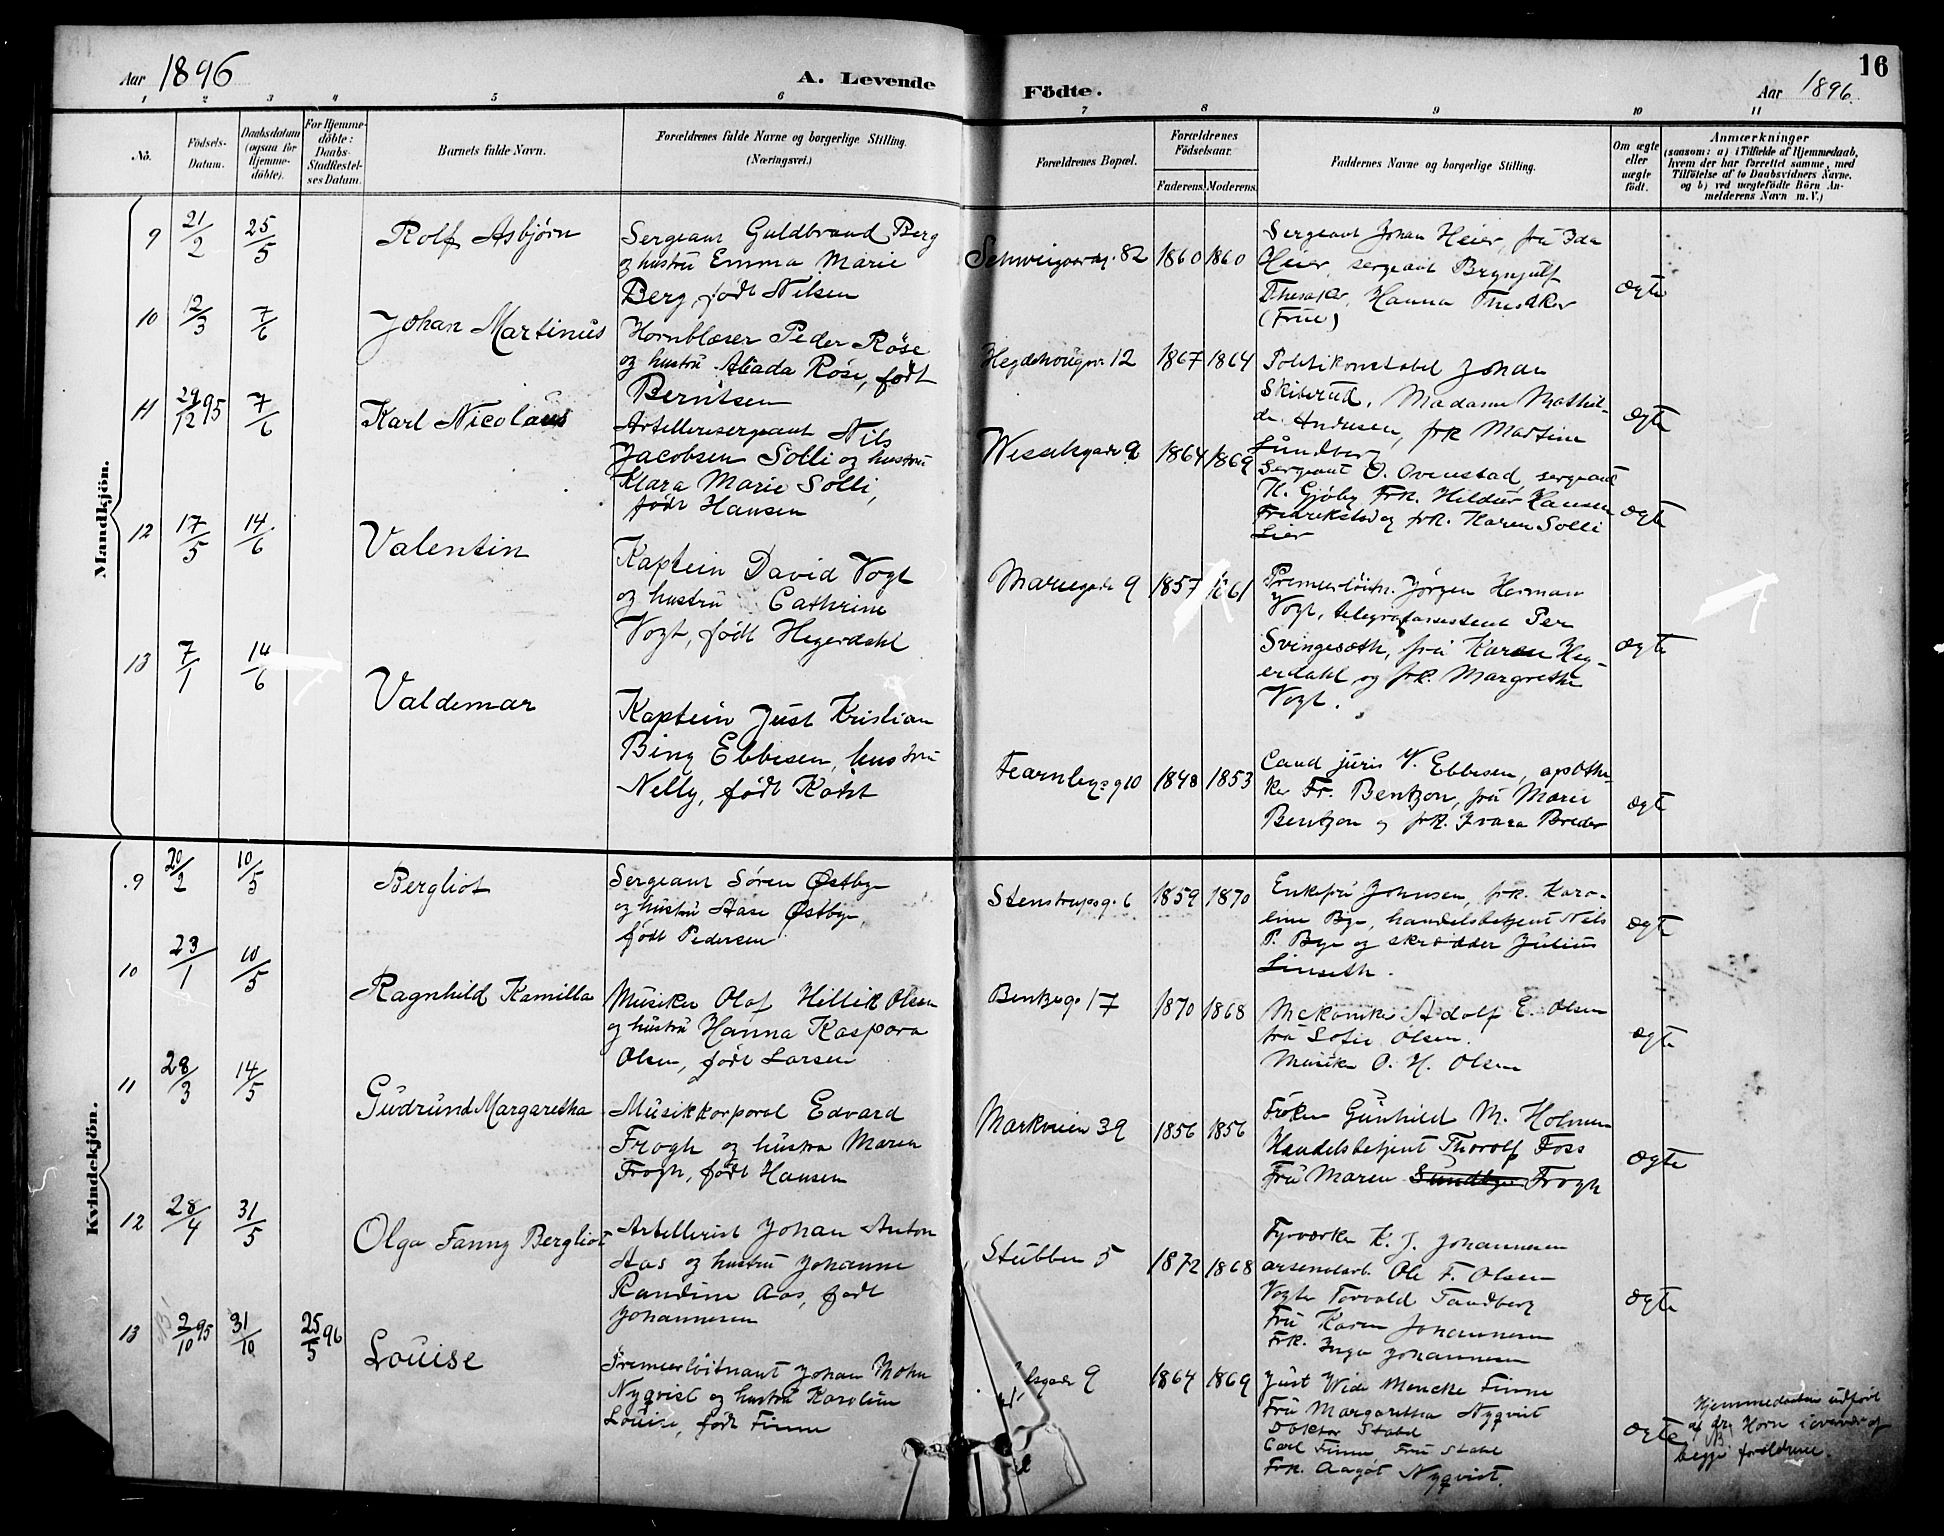 Aar 1896
A. Levende
Födte.
Aar 1896.
16
1 2 3 4 5 6 7 8 9 10 11
No.
Födsels-
Datum.
Daabsdatum
(ogsaa for
Hjemme-
döbte).
For Hjemme-
döbte:
Daabs-
Stadfæstel-
ses Datum.
Barnets fulde Navn.
Forældrenes fulde Navne og borgerlige Stilling.
(Næringsvei.)
Forældrenes Bopæl.
Forældrenes
Födselsaar.
Faderens. Moderens.
Faddernes Navne og borgerlige Stilling.
Om ægte
eller
uægte
født.
Anmærkninger
(saasom: a) i Tilfælde af Hjemmedaab,
hvem der har forrettet samme, med
Tilföielse af to Daabsvidners Navne,
og b) ved uægtefödte Börn An-
melderens Navn m. V.)
Mandkjön.
9 21/2 25/5 Rolf Asbjørn
Sergeant Guldbrand Berg
og hustru Emma Marie
Berg, født Nilsen
Schweigaardsg. 82 1860 1860
Sergeant Johan Heier, fru Ida
Heier, sergeant Brynjulf
Hanna
(Frue)
ægte
10 12/3 7/6 Johan Martinus
Hornblæser Peder Röse
og hustru Röse, født
Berntsen
12 1867 1864
Politikonstabel Johan
Skiberud, Madame Mathil-
de Andersen, frk Martine
Lundberg
ægte
11 29/12 95 7/6 Karl Nicolaus
Artillerisergeant Nils
Jacobsen Solli og hustru
Klara Marie Solli,
født Hansen
Wesselsgade 9 1864 1869
Sergeant O. Ovenstad, sergeant
H. Gjöby Frk. Hildur Hansen
Fredrikstad og frk. Karen Solli
Lier
ægte
12 17/5 14/6 Valentin
Kaptein David Vogt
og hustru Cathrine
Vogt, født Hegerdahl
Mariegade 9 1857 1861
Premierløitn. Jörgen Herman
Vogt, telegrafassistent Per
fru Karen Heg-
erdahl og frk. Margrethe
Vogt.
ægte
13 7/1 14/6 Valdemar
Kaptein Just Kristian
Bing Ebbesen, hustru
Nelly, født
Fearnleysg 10 1848 1853
Cand juris W. Ebbesen, apothe-
ker Fr. Bentzon, fru Marie
Bentzon og frk. Breder
ægte
Kvindekjön.
9 20/2 10/5 Bergliot
Sergeant Sören Østbye
og hustru Aase Østbye,
født Pedersen
Stenstrupsg. 6 1859 1870
Enkefru Johnsen, frk. Karo-
line Bye, handelsbetjent Nils
P. Bye og skrædder Julius
Linseth.
ægte
10 23/1 10/5 Ragnhild Kamilla
Musiker Olaf Olsen
og hustru Hanna Kaspara
Olsen, født Larsen
Bentseg. 17 1870 1868
Mekaniker Adolf E. Olsen
fru Sofie Olsen.
Musiker O. H. Olsen
ægte
11 28/3 14/5 Gudrund Margaretha
Musikkorporal Edvard
Frogh og hustru Maren
Frogh, født Hansen
Markveien 39 1856 1856
Fröken Gunhild M. Holmen
Handelsbetjent Thorolf Foss
Fru Maren Sundbye Frogh
ægte
12 28/4 31/5 Olga Fanny Bergliot
Artillerist Johan Anton
Aas og hustru Johanne
Randine Aas, født
Johannesen
Stubben 5 1872 1868
Fyrværker K. J. Johannesen
arsenalarb. Ole F. Olsen
Vogter Torvald Tandberg
Fru Karen Johannesen
Frk. Inga Johannesen
ægte
13 2/10 95 31/10 25/5 96 Louise
Premierløitnant Johan Mohn
Nyqvist og hustru Karoline
Louise, født Finne
9 1864 1869
Just Wide Mencke Finne
Fru Margaretha Nyqvist
Doktor Stabel
Carl Finne Fru Stabel
Frk. Aagot Nyqvist.
ægte
Hjemmedaaben udført
af dr. Horn i overvær af
begge forældrene.